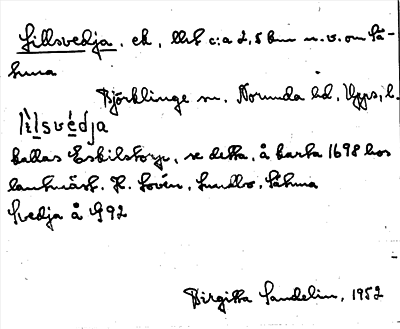 Lillsvedja, ek, llt c:a 2,5 km n.v. om Så-
huna
Björklinge sn. Norunda hd. Upps. l.
lìlsvédja
kallas Eskilstorp, se detta, å karta 1698 hos
lantmät. H. Lovén, Lundbo, Såhuna
Svedja å G 92
Birgitta Sandelin, 1952